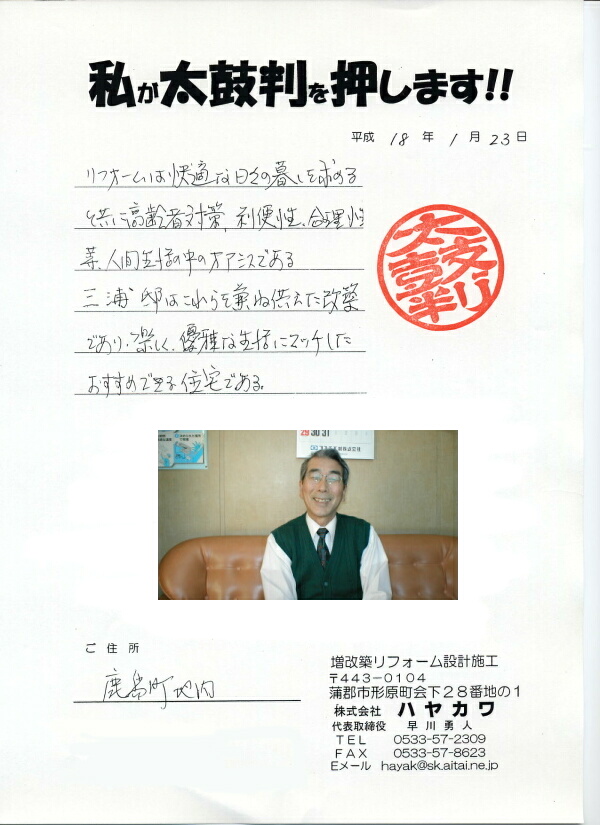 私が太鼓判を押します!!
平成 18 年 1 月 23 日
リフォームは快適な日々の暮しを求める
と共に高齢者対策、利便性、合理性
等、人間生活の中のオアシスである
三浦邸はこれらを兼ね供えた改築
であり、楽しく、優雅な生活にマッチした
おすすめできる住宅である。
太鼓判
29 30 31
ご住所
鹿島町地内
増改築リフォーム設計施工
〒443-0104
蒲郡市形原町会下28番地の1
株式会社 ハヤカワ
代表取締役 早川勇人
TEL 0533-57-2309
FAX 0533-57-8623
Eメール hayak@sk.aitai.ne.jp